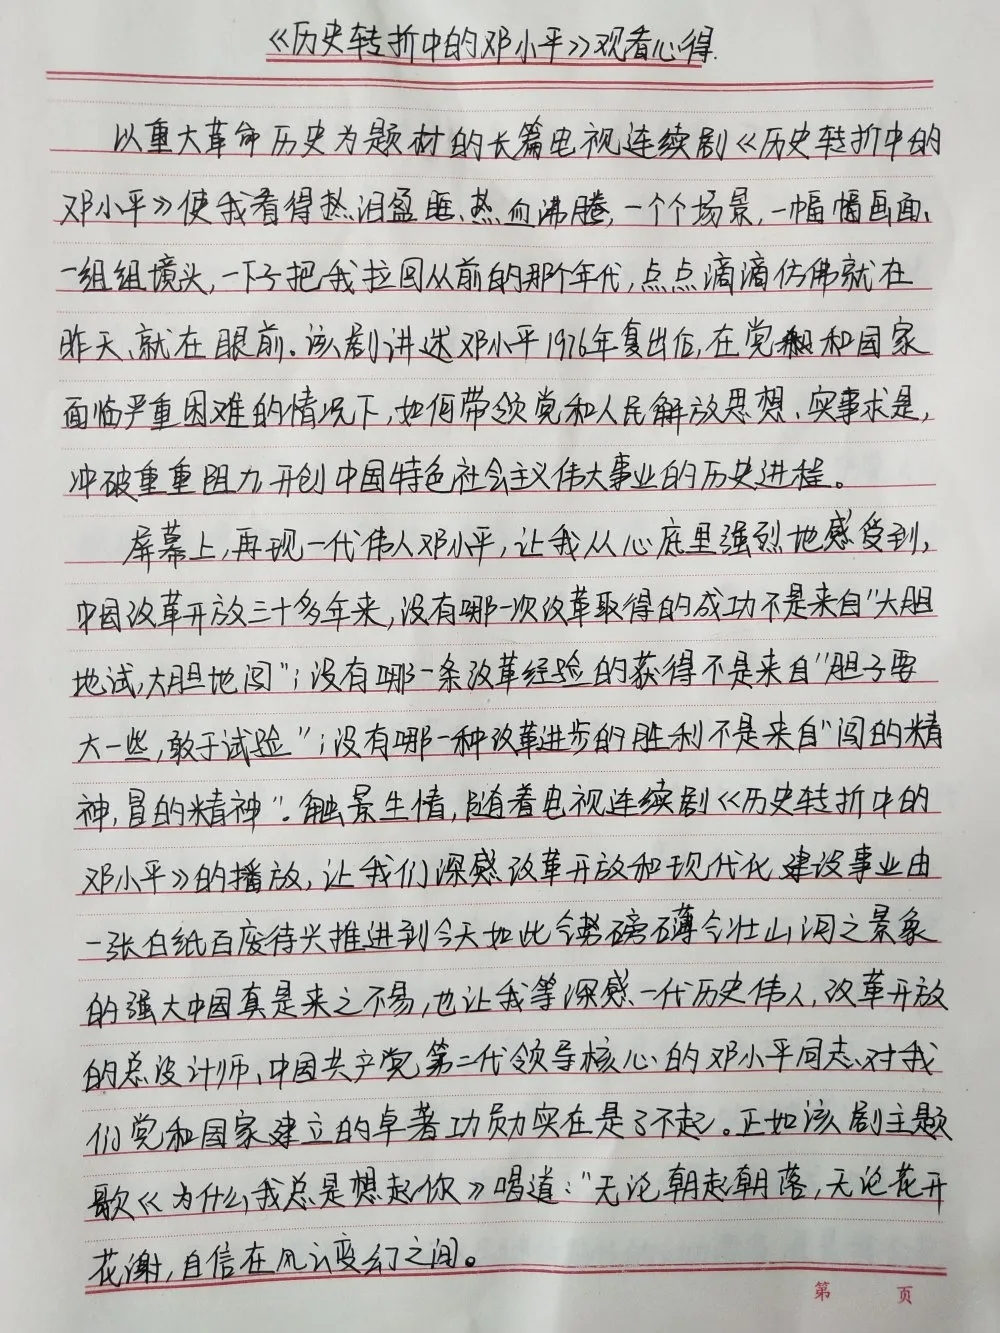 《历史转折中的邓小平》观看心得.
以重大革命历史为题材的长篇电视连续剧《历史转折中的
邓小平》使我看得热泪盈眶、热血沸腾,一个个场景,一幅幅画面、
一组组境头,一下子把我拉回从前的那个年代,点点滴滴仿佛就在
昨天、就在眼前。该剧讲述邓小平1976年复出后,在党和国家
面临严重困难的情况下,如何带领党和人民解放思想、实事求是,
冲破重重阻力,开创中国特色社会主义伟大事业的历史进程。
屏幕上,再现一代伟人邓小平,让我从心底里强烈地感受到,
中国改革开放三十多年来,没有哪一次改革取得的成功不是来自“大胆
地试,大胆地闯”;没有哪一条改革经验的获得不是来自“胆子要
大一些,敢于试验”;没有哪一种改革进步的胜利不是来自“闯的精
神,冒的精神”。触景生情,随着电视连续剧《历史转折中的
邓小平》的播放,让我们深感改革开放和现代化建设事业由
一张白纸百废待兴推进到今天如此磅礴壮山河之景象
的强大中国真是来之不易,也让我等深感一代历史伟人,改革开放
的总设计师、中国共产党第二代领导核心的邓小平同志对我
们党和国家建立的卓著功勋实在是了不起。正如该剧主题
歌《为什么我总是想起你》唱道:“无论朝起朝落,无论花开
花谢,自信在风云变幻之间。
第 页